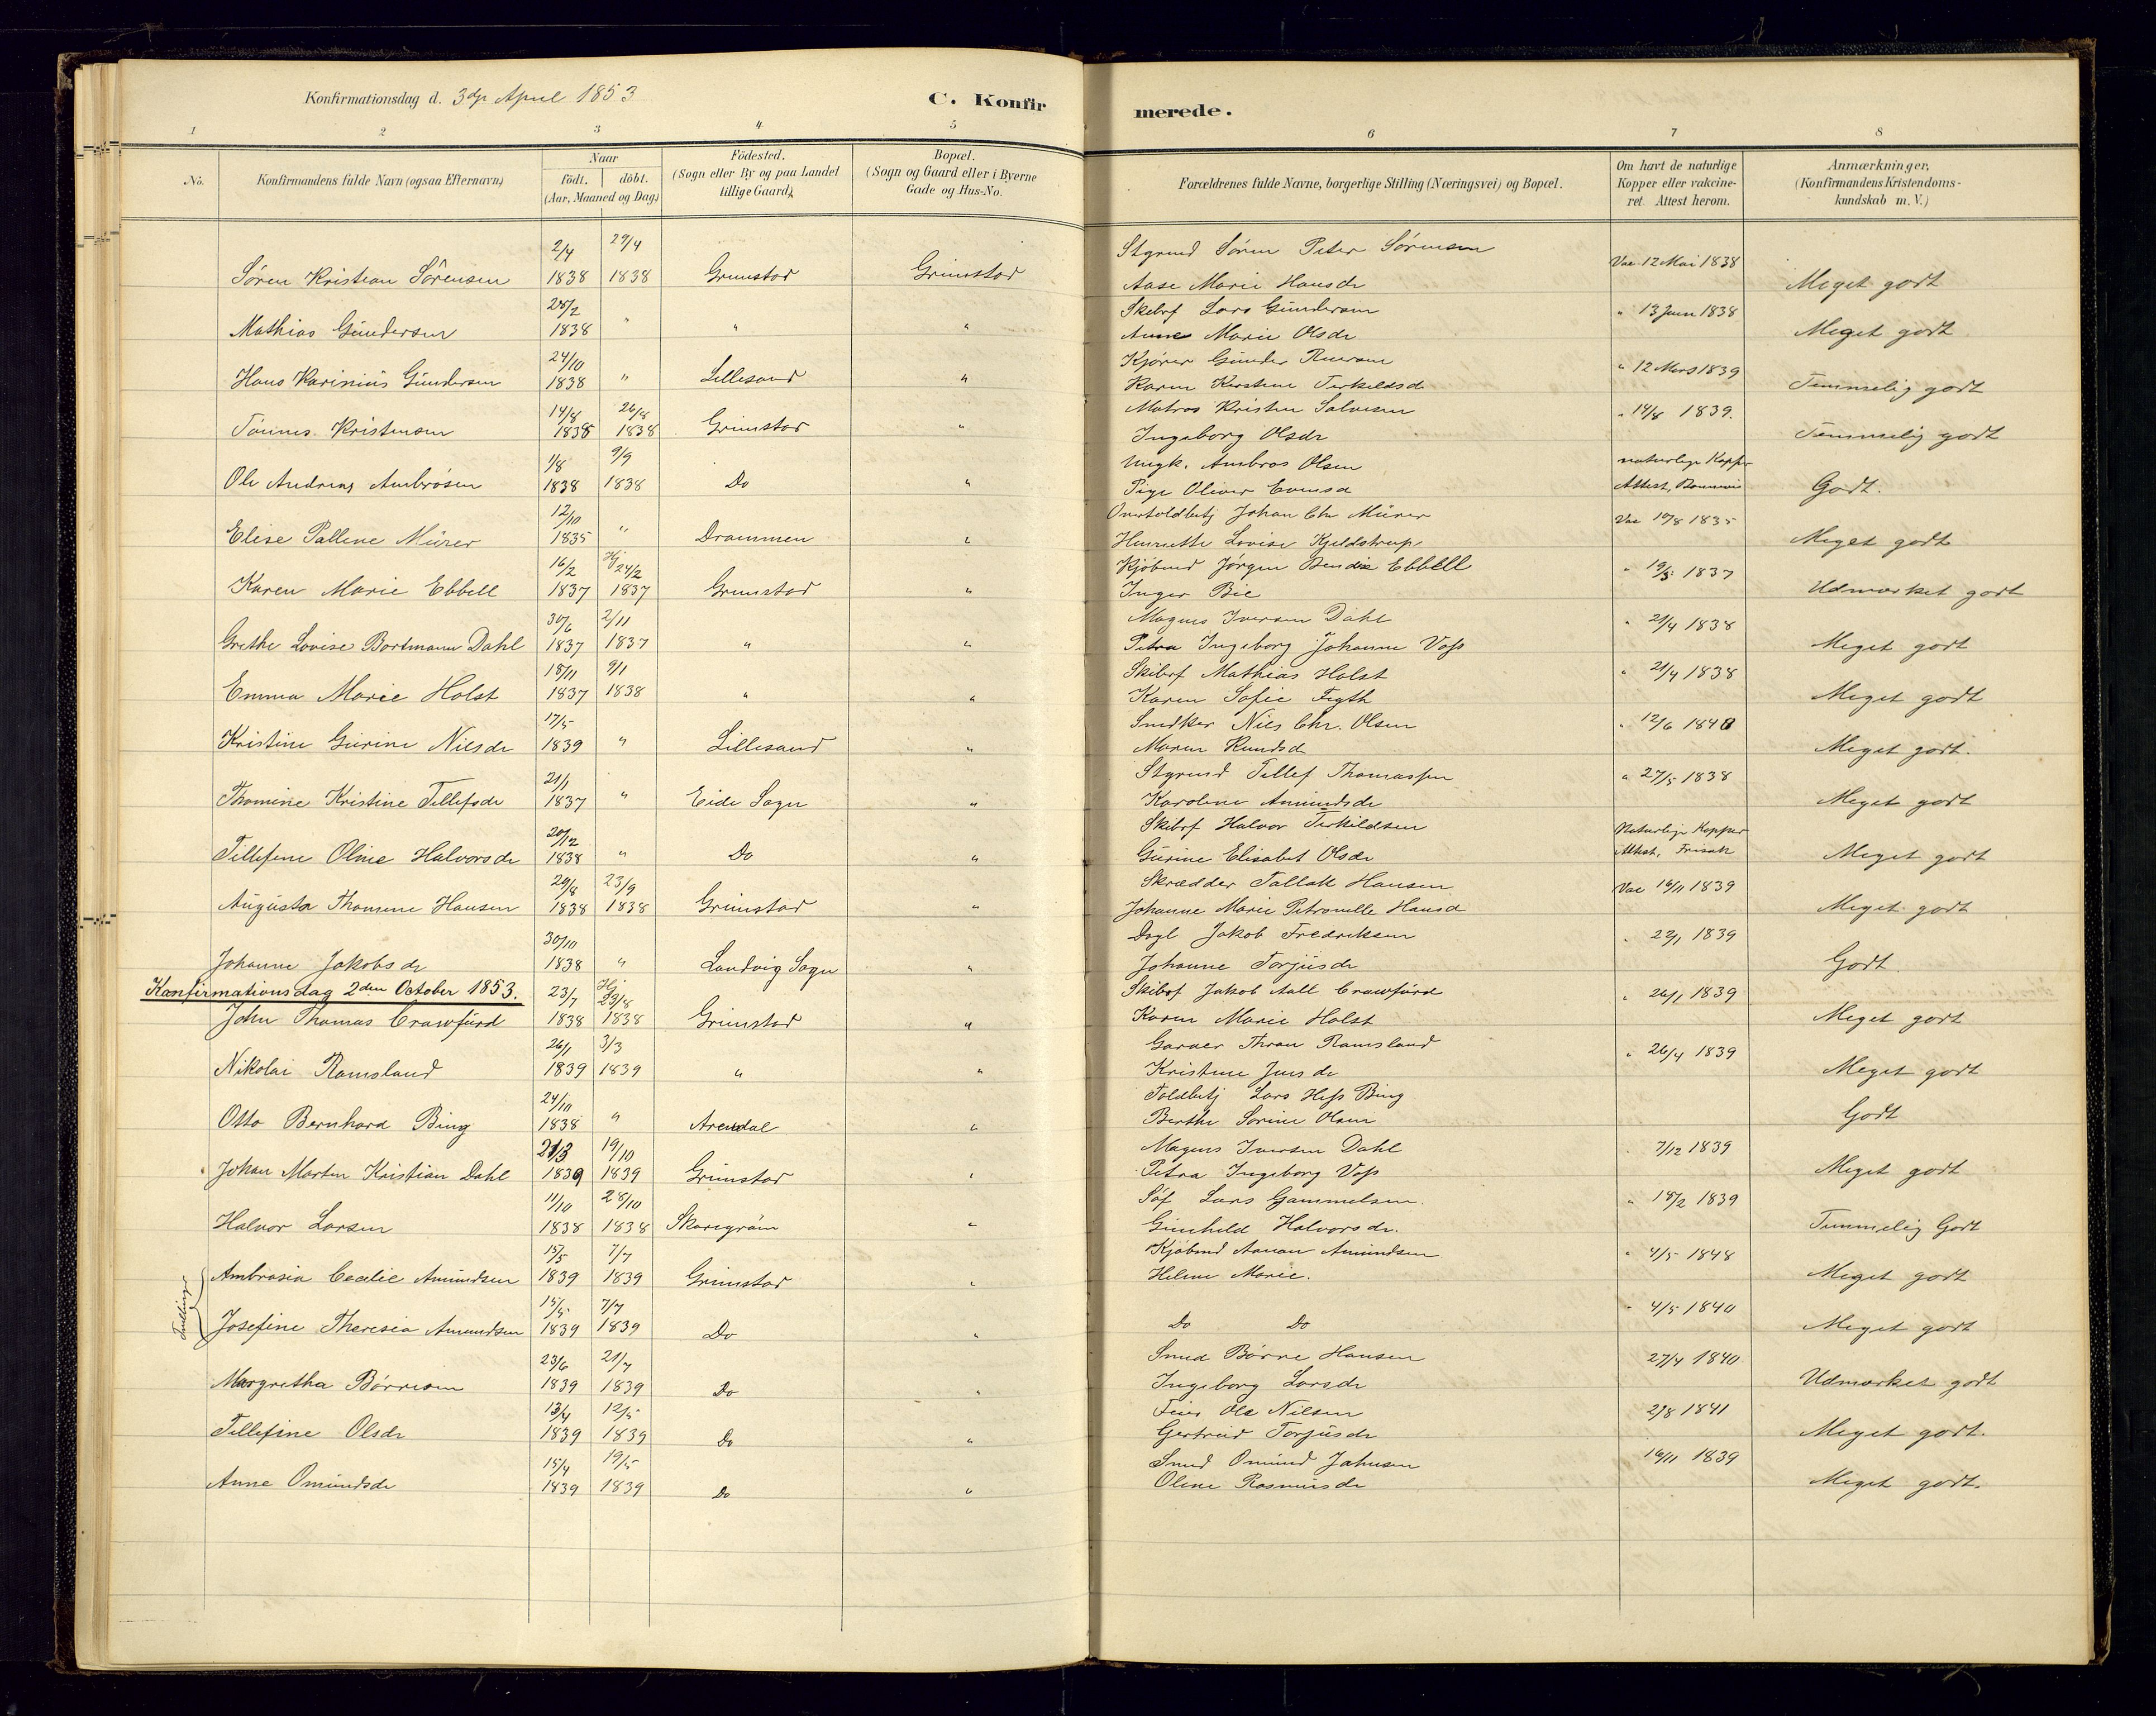 Konfirmationsdag d. 3die April 1853
C. Konfirmerede.
1 2 3 4 5 6 7 8
No.
Konfirmandens fulde Navn (ogsaa Efternavn)
Naar
födt. döbt.
(Aar, Maaned og Dag)
Födested.
(Sogn eller By og paa Landet
tillige Gaard)
Bopæl.
(Sogn og Gaard eller i Byerne
Gade og Hus-No.
Forældrenes fulde Navne, borgerlige Stilling (Næringsvei) og Bopæl.
Om havt de naturlige
Kopper eller vakcine-
ret. Attest herom.
Anmærkninger,
(Konfirmandens Kristendoms-
kundskab m. V.)
2/4 29/4 Styrmd Sören Peter Sörensen
Sören Kristian Sörensen 1838 1838 Grimstad Grimstad Aase Marie Hansdr Vac 12 Mai 1838 Meget godt
25/2 Skibsf Lars Gundersen
Mathias Gundersen 1838 " " " Anne Marie Olsdr " 13 Juni 1838 Meget godt
24/10 Kjører Gunder
Hans Karinius Gundersen 1838 " Lillesand " Karen Kirstine Terkildsd " 12 Mars 1839 Temmelig godt
14/8 26/8 Matros Kristen Salvesen
Tönnes Kristensen 1838 1838 Grimstad " Ingeborg Olsdr " 14/8 1839. Temmelig godt
1/8 9/9 Ungk. Ambros Olsen naturlige Kopper
Ole Andreas Ambrosen 1838 1838 Do " Pige Oliver Evensd Attest, Godt.
12/10 Overtoldbetj Johan Chr Mürer
Elise Palline Mürer 1835 " Drammen " Henriette Lovise Kjeldstrup Vac 19/8 1835 Meget godt
16/2 Hj 24/2 Kjöbmd Jörgen Bendix Ebbell
Karen Marie Ebbell 1837 1837 Grimstad " Inger Bie " 19/5 1837 Udmærket godt
30/6 2/11 Magnus Iversen Dahl
Grethe Lovise Bortmann Dahl 1837 1837 " " Petra Ingeborg Johanne Voss " 21/4 1838 Meget godt
18/11 9/1 Skibsf Mathias Holst
Emma Marie Holst 1837 1838 " " Karen Sofie Fegth " 21/4 1838 Meget godt
17/5 Snedker Niels Chr. Olsen
Kristine Gurine Nilsdr 1839 " Lillesand " Maren Knudsd " 12/6 1840 Meget godt.
21/1 Styrmd Tellef Thomassen
Thomine Kristine Tellefsdr 1837 " Eide Sogn " Karoline Amundsdr " 27/5 1838 Meget godt
20/12 Skibsf Halvor Terkildsen Naturlige Kopper
Tellefine Oline Halvorsdr 1838 " Do " Gurine Elisabet Olsdr Attest, Frisak Meget godt
29/8 23/9 Skrædder Tallak Hansen
Augusta Thomine Hansen 1838 1838 Grimstad " Johanne Marie Petronelle Hansd Vac 16/11 1839 Meget godt
30/10 Dagl Jakob Fredriksen
Johanne Jakobsdr 1838 " Landvig Sogn " Johanne Torjusdr " 22/1 1839 Godt
Konfirmationsdag 2den October 1853.
23/7 Hj 23/8 Skibsf Jakob Aall Crawfurd
John Thomas Crawfurd 1838 1838 Grimstad " Karen Marie Holst " 26/1 1839 Meget godt
26/1 3/3 Garver Thron Ramsland
Nikolai Ramsland 1839 1839 " " Kristine Jensdr " 26/4 1839 Meget godt
24/10 Toldbetj Lars Hess Bing
Otto Bernhard Bing 1838 " Arendal " Berthe Sorine Olsen Godt
21/3 19/10 Magnus Iversen Dahl
Johan Morten Kristian Dahl 1839 1839 Grimstad " Petra Ingeborg Voss " 7/12 1839 Meget godt
11/10 28/10 Söf Lars Gammelsen
Halvor Larsen 1838 1838 " Gunhild Halvorsdr. " 18/2 1839 Temmelig Godt
15/5 7/7 Kjöbmd Aanon Amundsen
Ambrosia Cecilie Amundsen 1839 1839 Grimstad " Helene Marie. " 4/5 1848 Meget godt
Tvillinger
15/5 7/7
Josefine Theresia Amundsen 1839 1839 Do " Do Do " 4/5 1840 Meget godt
23/6 21/7 Smed Börre Hansen
Margretha Börresen 1839 1839 Do " Ingeborg Larsdr 27/4 1840 Udmærket godt
13/4 12/5 Feier Ole Nilsen
Tellefine Olsdr 1839 1839 Do " Gertrud Torjusdr 2/8 1841 Meget godt.
15/4 19/5 Smed Omund Johnsen
Anne Omundsdr 1839 1839 Do " Oline Rasmusdr 16/11 1839 Meget godt.